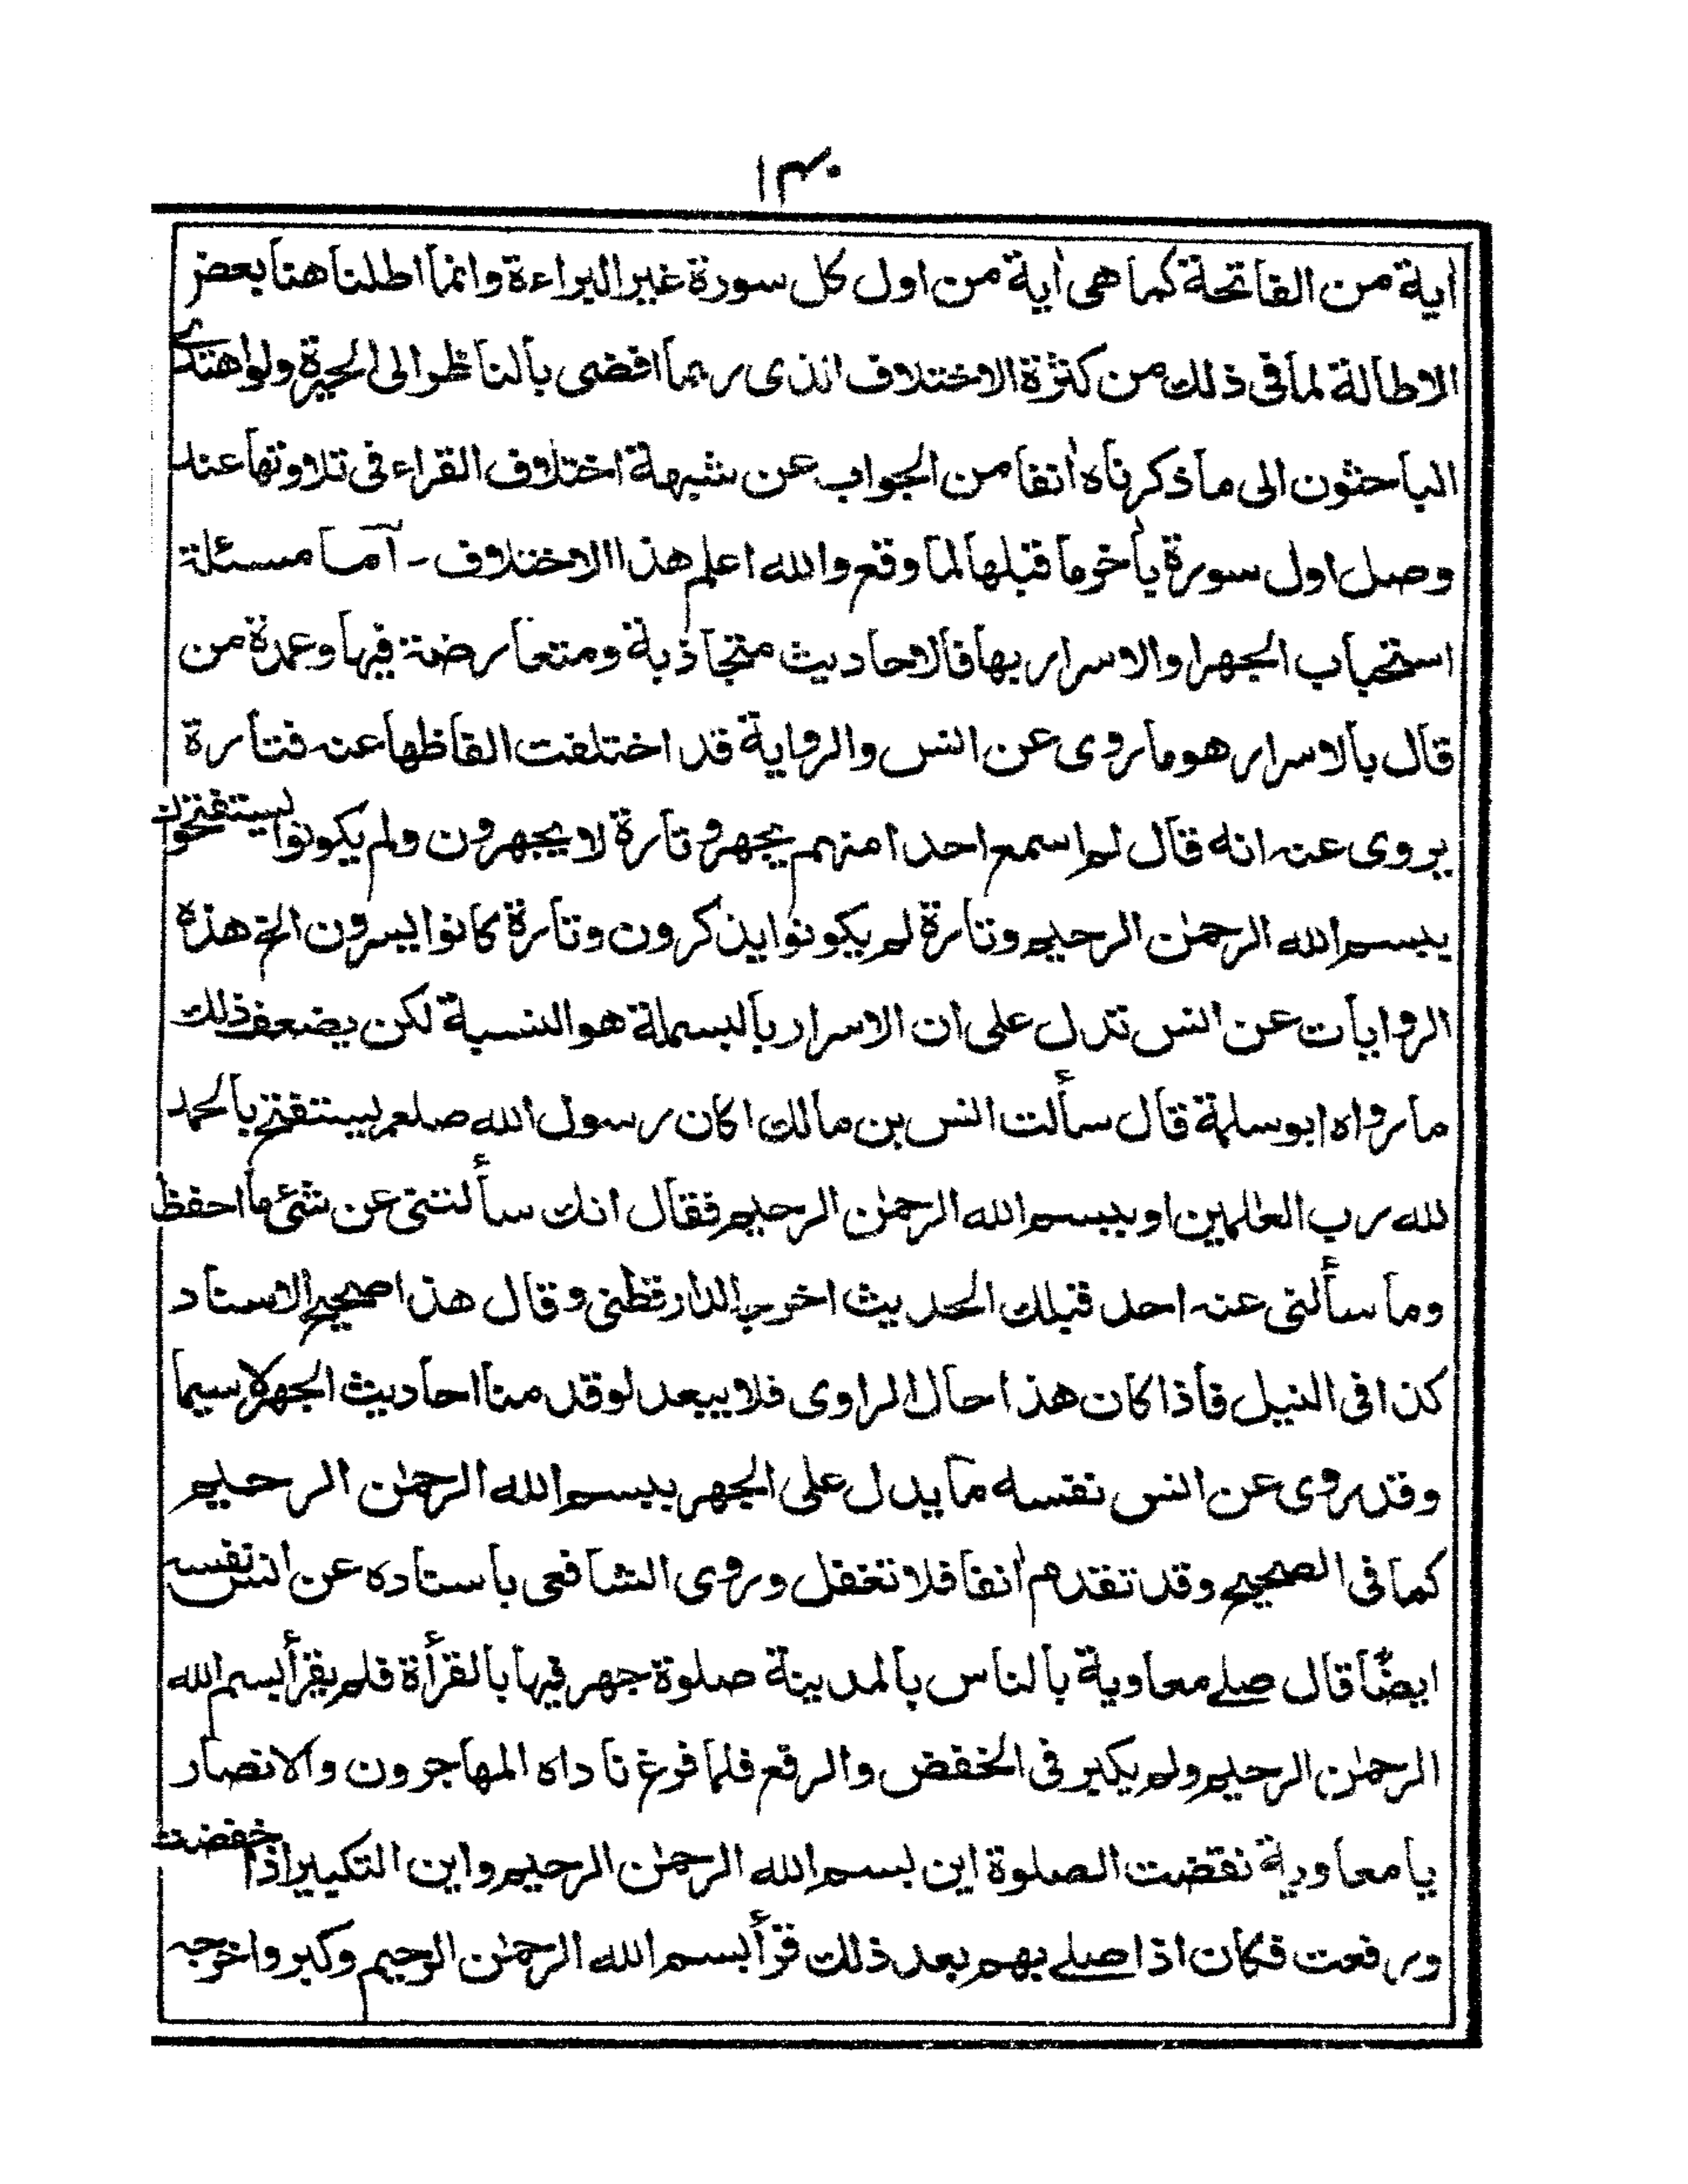 ۱۴۰
اٰية من الفاتحة كما هى اٰية من اول كل سورة غير البراءة وانما اطلنا هنا بعض
الاطالة لما فى ذلك من كثرة الاختلاف الذى ربما افضى بالناظر الى الحيرة ولو اهتدى
الباحثون الى ما ذكرناه اٰنفا من الجواب عن شبهة اختلاف القراء فى تلاوتها عند
وصل اول سورة باٰخر ما قبلها لما وقع والله اعلم هذا الاختلاف - آما مسئلة
استحباب الجهر او الاسرار بها فالاحاديث متجاذبة ومتعارضة فيها وعمدة من
قال بالاسرار هو ما روى عن انس والرواية قد اختلفت الفاظها عنه فتارة
يروى عنه انه قال لم اسمع احدا منهم يجهر وتارة لا يجهرون ولم يكونوا يستفتحون
ببسم الله الرحمٰن الرحيم وتارة لم يكونوا يذكرون وتارة كانوا يسرون الخ هذه
الروايات عن انس تدل على ان الاسرار بالبسملة هو النسبة لكن يضعف ذلك
ما رواه ابو سلمة قال سألت انس بن مالك اكان رسول الله صلعم يستفتح بالحمد
لله رب العٰلمين او ببسم الله الرحمٰن الرحيم فقال انك سألتنى عن شئ ما احفظ
وما سألنى عنه احد قبلك الحديث اخرجه الدارقطنى وقال هذا صحيح الاسناد
كذا فى النيل فاذا كان هذا حال الراوى فلا يبعد لو قدمنا احاديث الجهر لا سيما
وقد روى عن انس نفسه ما يدل على الجهر ببسم الله الرحمٰن الرحيم
كما فى الصحيح وقد تقدم اٰنفا فلا تغفل وروى الشافعى باسناده عن انس نفسه
ايضًا قال صلے معاوية بالناس بالمدينة صلوة جهر فيها بالقرأة فلم يقرأ بسم الله
الرحمٰن الرحيم ولم يكبر فى الخفض والرفع فلما فرغ ناداه المهاجرون والانصار
يا معاوية نقضت الصلوة اين بسم الله الرحمٰن الرحيم واين التكبير اذا خفضت
ورفعت فكان اذا صلے بهم بعد ذلك قرأ بسم الله الرحمٰن الرحيم وكبر واخرجه